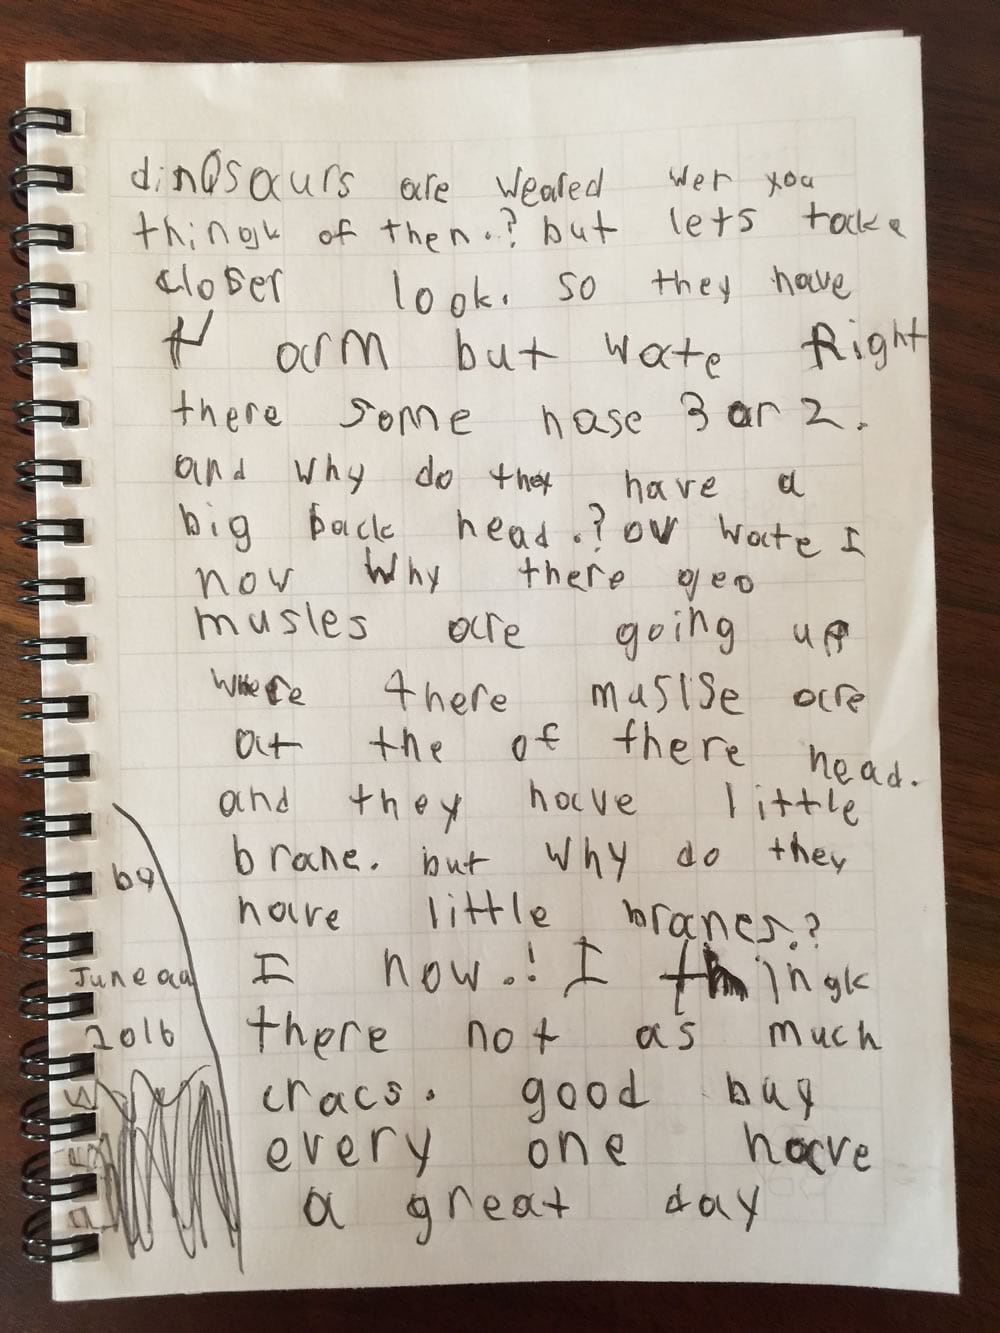 dinosaurs are weared wer you
thingk of then.? but lets take
closer look. so they have
arm but wate Right
there some hase 3 or 2.
and why do they have a
big back head.? ov wate I
now why there geo
musles are going up
where there muslse are
at the of there head.
and they have little
brane. but why do they
have little branes.?
I now.! I thingk
there not as much
cracs. good buy
every one have
a great day
by
June
2016